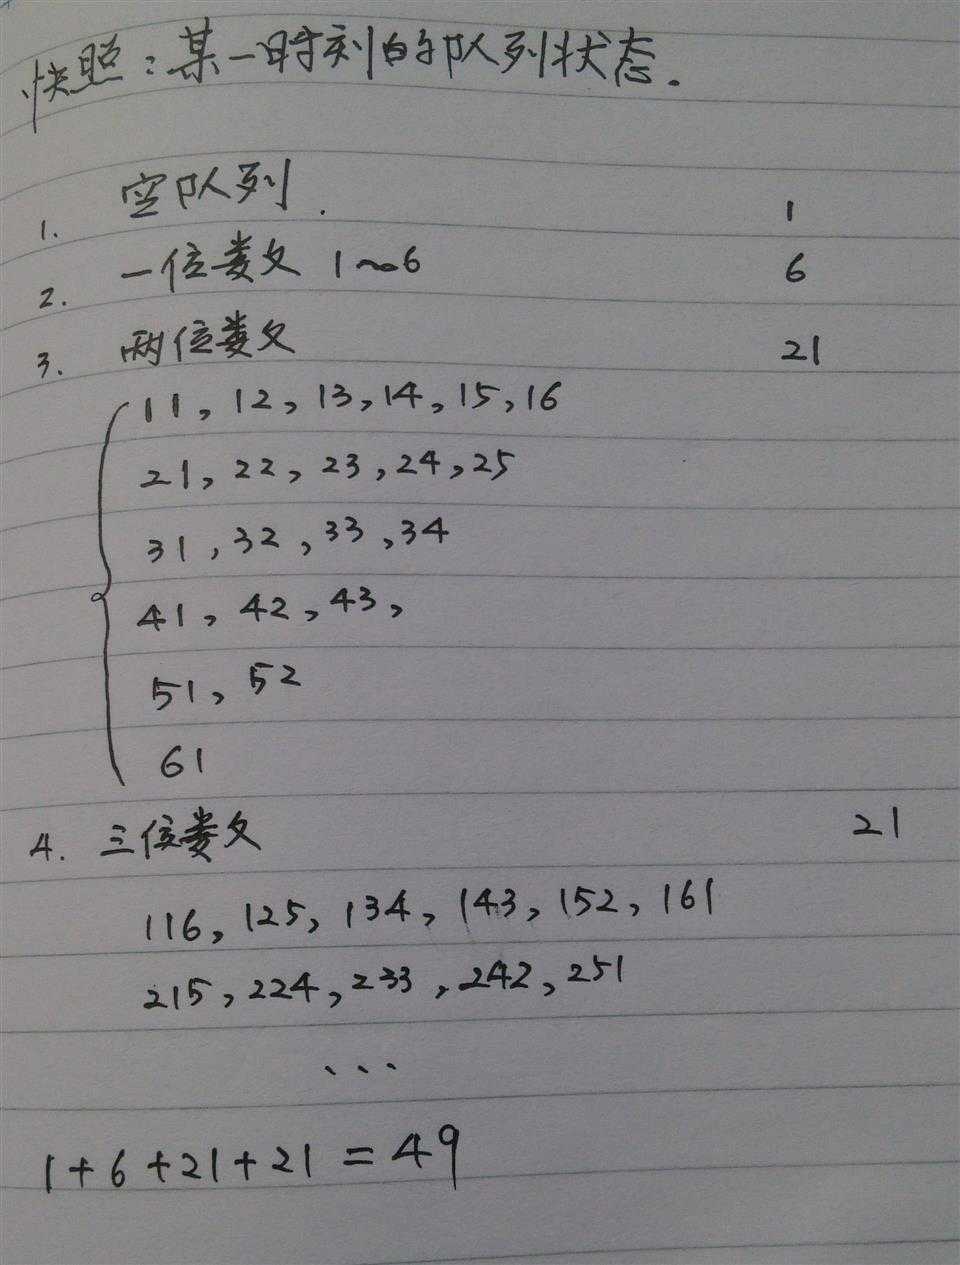 快照：某一时刻的队列状态.
1. 空队列. 1
2. 一位娄文 1~6 6
3. 两位娄文 21
11, 12, 13, 14, 15, 16
21, 22, 23, 24, 25
31, 32, 33, 34
41, 42, 43,
51, 52
61
4. 三位娄文 21
116, 125, 134, 143, 152, 161
215, 224, 233, 242, 251
...
1+6+21+21=49